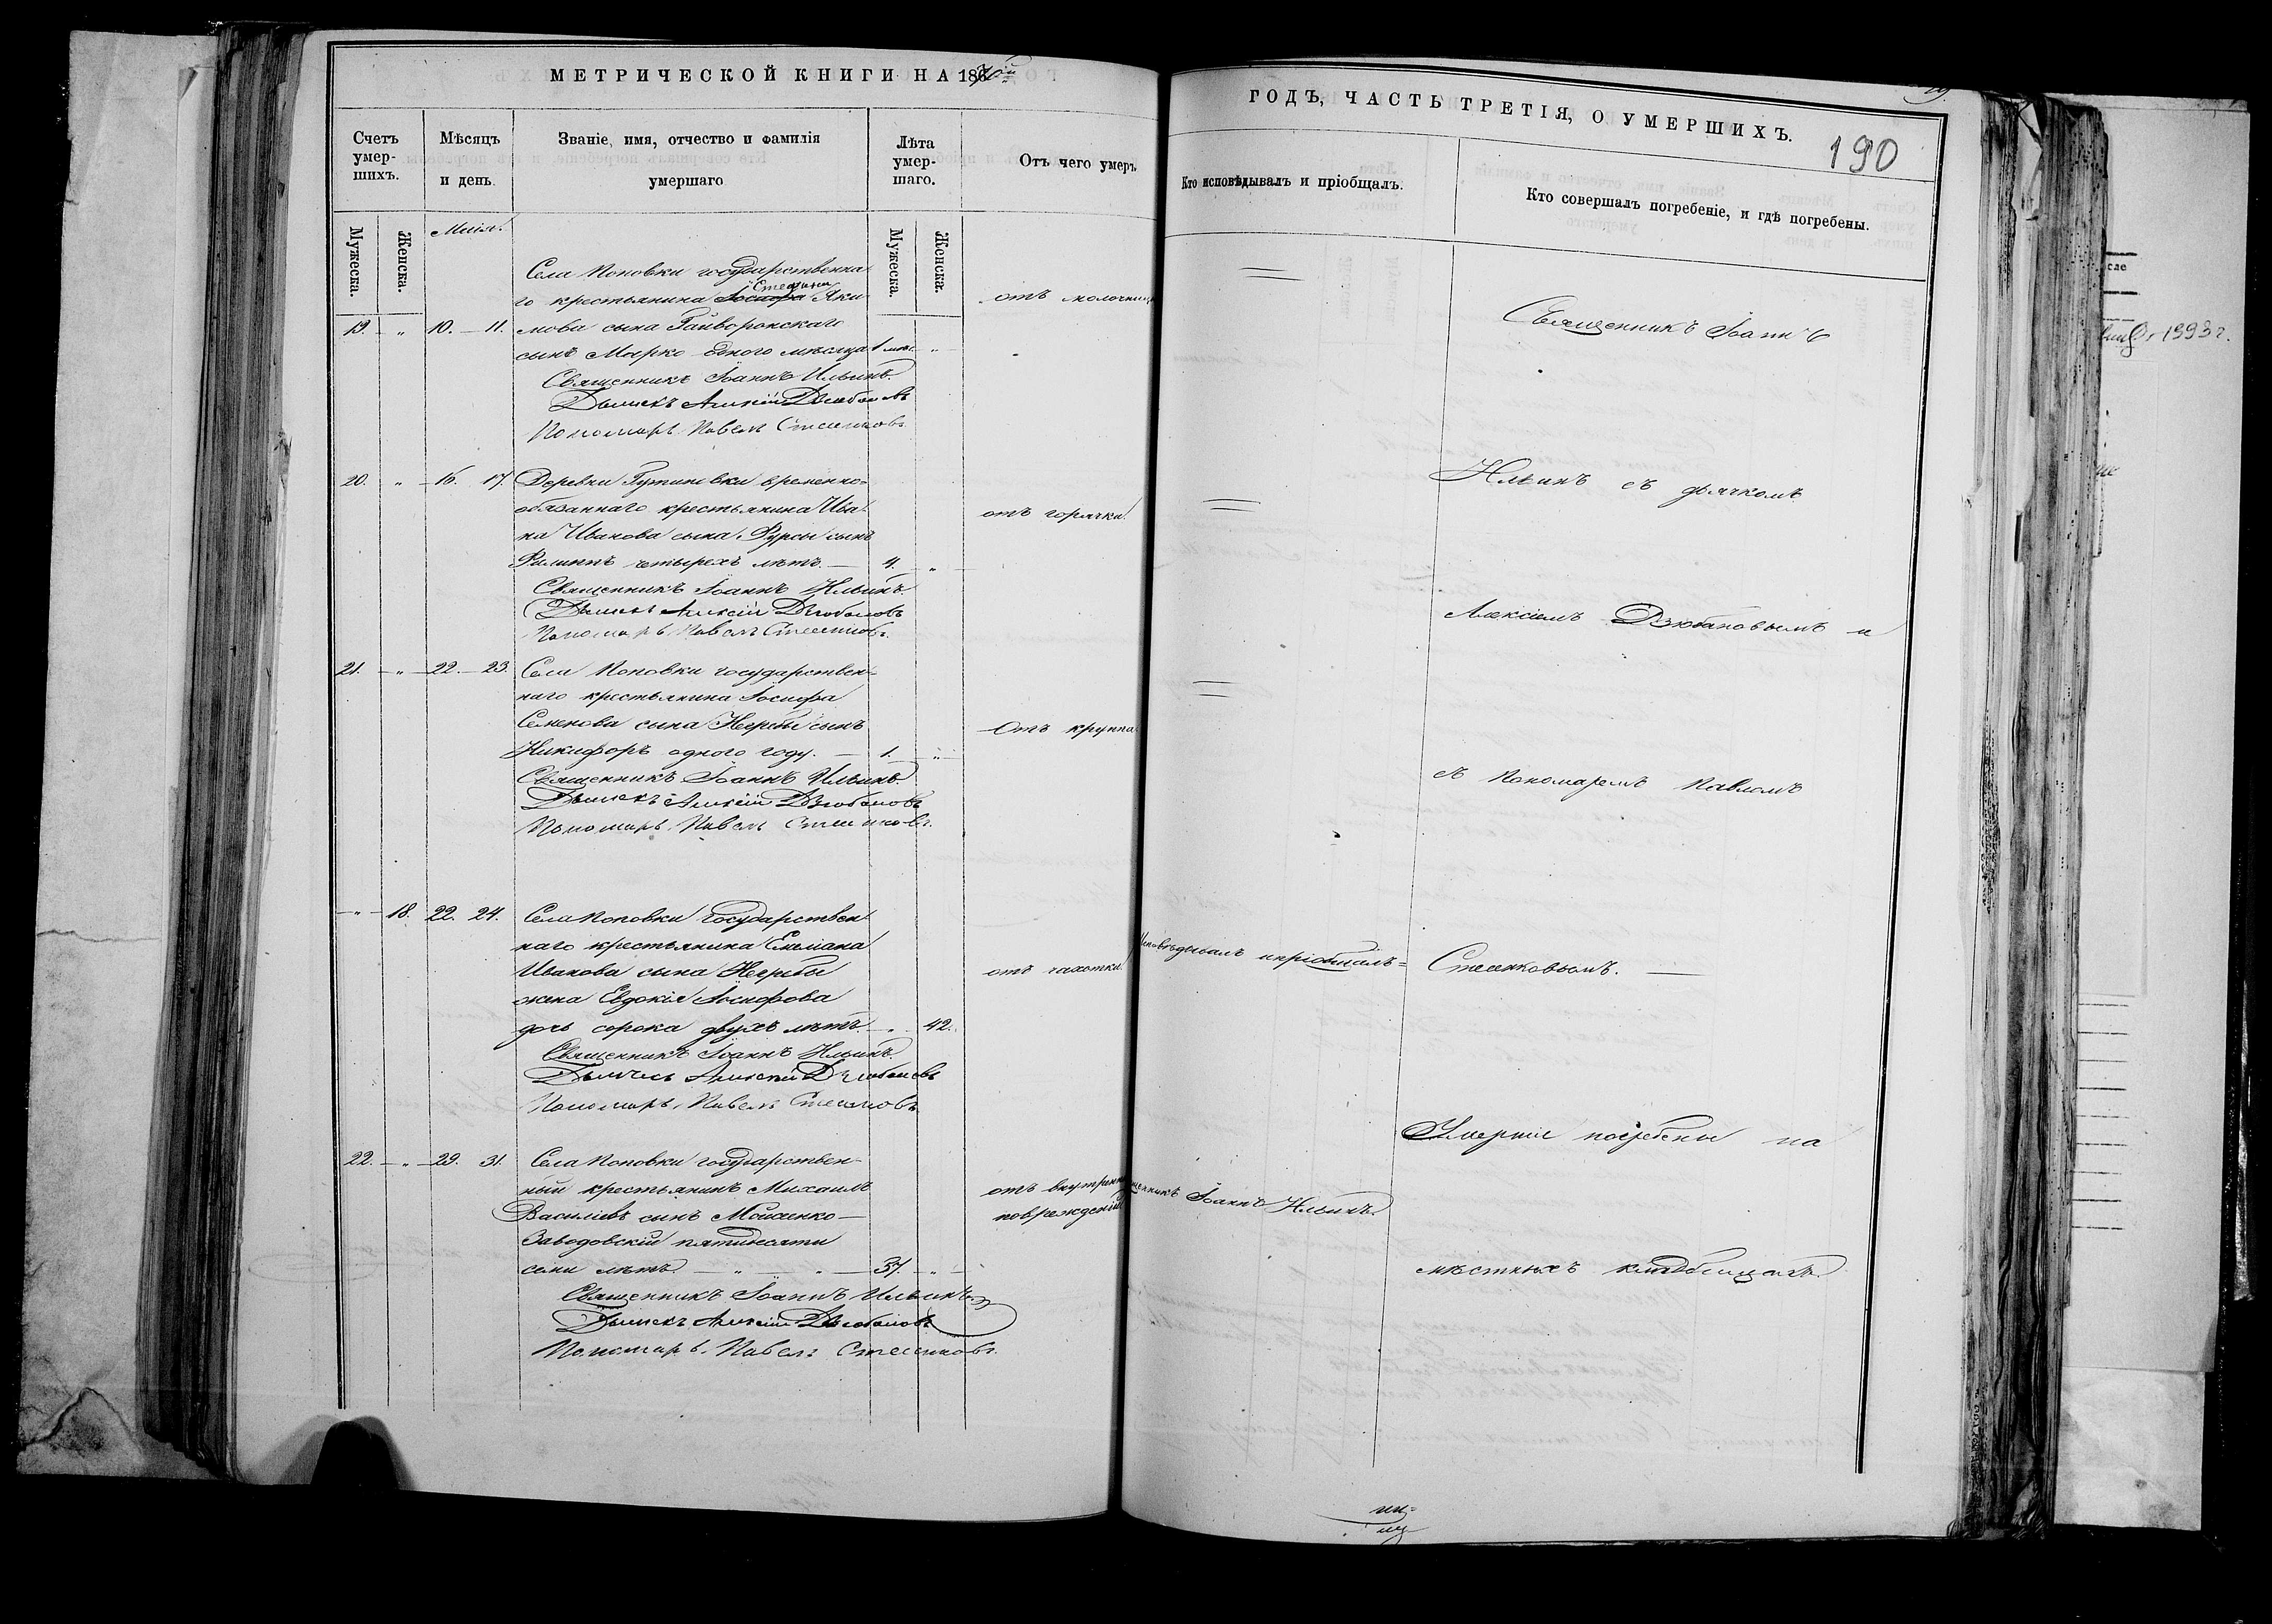 МЕТРИЧЕСКОЙ КНИГИ НА 1870й
Счетъ умер-шихъ.
Мѣсяцъ и день
Званіе, имя, отчество и фамилія умершаго
Лѣта умер-шаго.
Отъ чего умеръ
Мужеска.
Женска.
Мужеска.
Женска.
Села Поповки государственна
го крестьянина Іосифа Яки
19. " 10. 11. мова сына Гайворонскаго
сынъ Марко одного мѣсяца 1 мѣс. "
отъ молочницы
Священникъ Іоаннъ Ильинъ.
Дьячекъ Алексій Дзюбановъ
Пономарь Павелъ Стеенковъ
20. " 16. 17. Деревни временно-
обязаннаго крестьянина Ива
на Иванова сына Фурсы сынъ
Филиппъ четырехъ лѣтъ. 4. "
отъ горячки
Священникъ Іоаннъ Ильинъ.
Дьячекъ Алексій Дзюбановъ
Пономарь Павелъ Стеенковъ.
21. " 22. 23. Села Поповки государствен-
наго крестьянина Іосифа
Семенова сына сынъ
Никифоръ одного году. 1. "
Отъ круппа
Священникъ Іоаннъ Ильинъ.
Дьячекъ Алексій Дзюбановъ
Пономарь Павелъ Стеенковъ.
" 18. 22. 24. Села Поповки государствен
наго крестьянина Емліана
Иванова сына
жена Евдокія Іосифова
дочь сорока двухъ лѣтъ. " 42.
отъ чахотки
Священникъ Іоаннъ Ильинъ.
Дьячекъ Алексій Дзюбановъ
Пономарь Павелъ Стеенковъ
22. " 29. 31. Села Поповки государствен-
ный крестьянинъ Михаилъ
Василіевъ сынъ Мойсенко-
Заводовскій пятидесяти
семи лѣтъ. " " 57. "
отъ внутрен
поврежденій
Священникъ Іоаннъ Ильинъ
Дьячекъ Алексій Дзюбановъ
Пономарь Павелъ Стеенковъ.
ГОДЪ, ЧАСТЬ ТРЕТІЯ, О УМЕРШИХЪ.
190
Кто исповѣдывалъ и пріобщалъ.
Кто совершалъ погребеніе, и гдѣ погребены.
Священникъ Іоаннъ
Ильинъ съ дьячкомъ
Алексіемъ Дзюбановымъ и
съ Пономаремъ Павломъ
Исповѣдывалъ и пріобщалъ
Стеенковымъ.
Умершіе погребены на
Іоаннъ Ильинъ.
мѣстныхъ кладбищахъ.
1993 г.